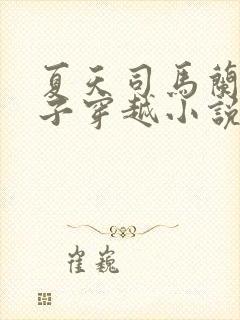 夏天司馬蘭
子穿越小說
崔巍